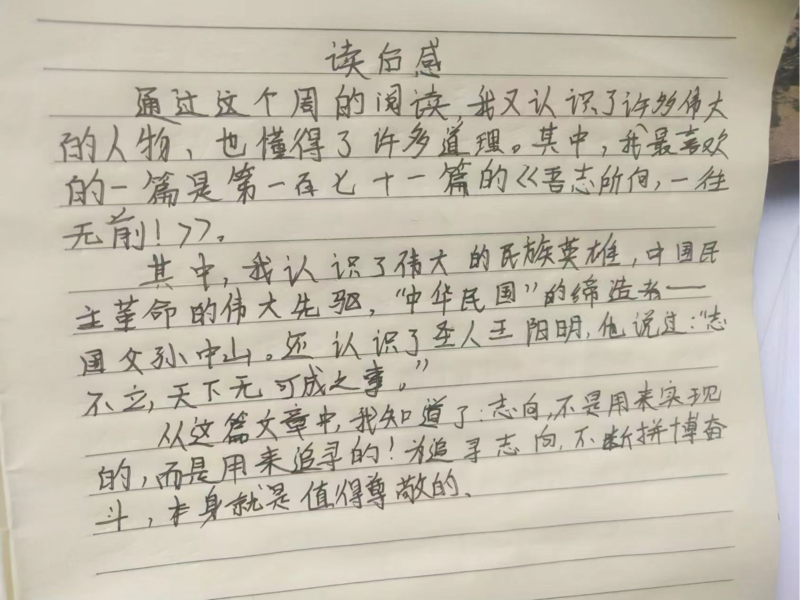 读后感
通过这个周的阅读,我又认识了许多伟大
的人物、也懂得了许多道理。其中,我最喜欢
的一篇是第一百七十一篇的《吾志所向,一往
无前!》。
其中,我认识了伟大的民族英雄,中国民
主革命的伟大先驱,“中华民国”的缔造者——
国父孙中山。还认识了圣人王阳明,他说过:“志
不立,天下无可成之事。”
从这篇文章中,我知道了:志向,不是用来实现
的,而是用来追寻的!为追寻志向,不断拼博奋
斗,本身就是值得尊敬的、